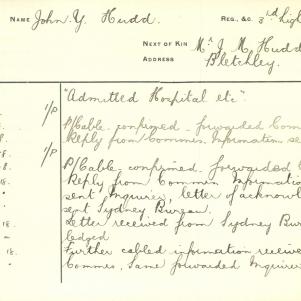 NAME John Y. Hudd REG., &C. 3rd Light
NEXT OF KIN Mr J. M. Hudd
ADDRESS Bletchley.
1/P "Admitted Hospital etc"
P/Cable confirmed - forwarded Com
Reply from Common Information se
8. 1/P P/Cable confirmed - forwarded
18. Reply from Common Information
sent Inquirer, letter of acknowl
sent Sydney Bureau
18. Letter received from Sydney Bur
" ledged
18. Further cabled information receive
" Commrs, Same forwarded Inquirer